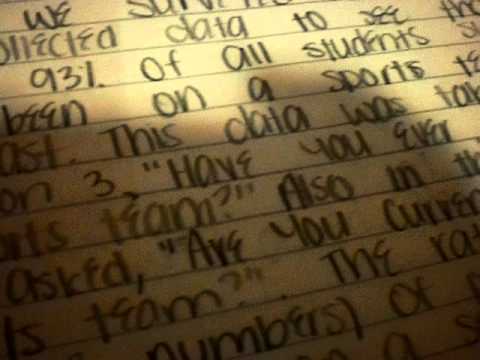 WE SURVE
ollected data to see th
93%. of all students su
been on a sports te
ast. This data was tak
on 3, "Have you ever
orts team?" Also in th
asked, "Are you curren
ts team?". The rat
numbers) of
a s